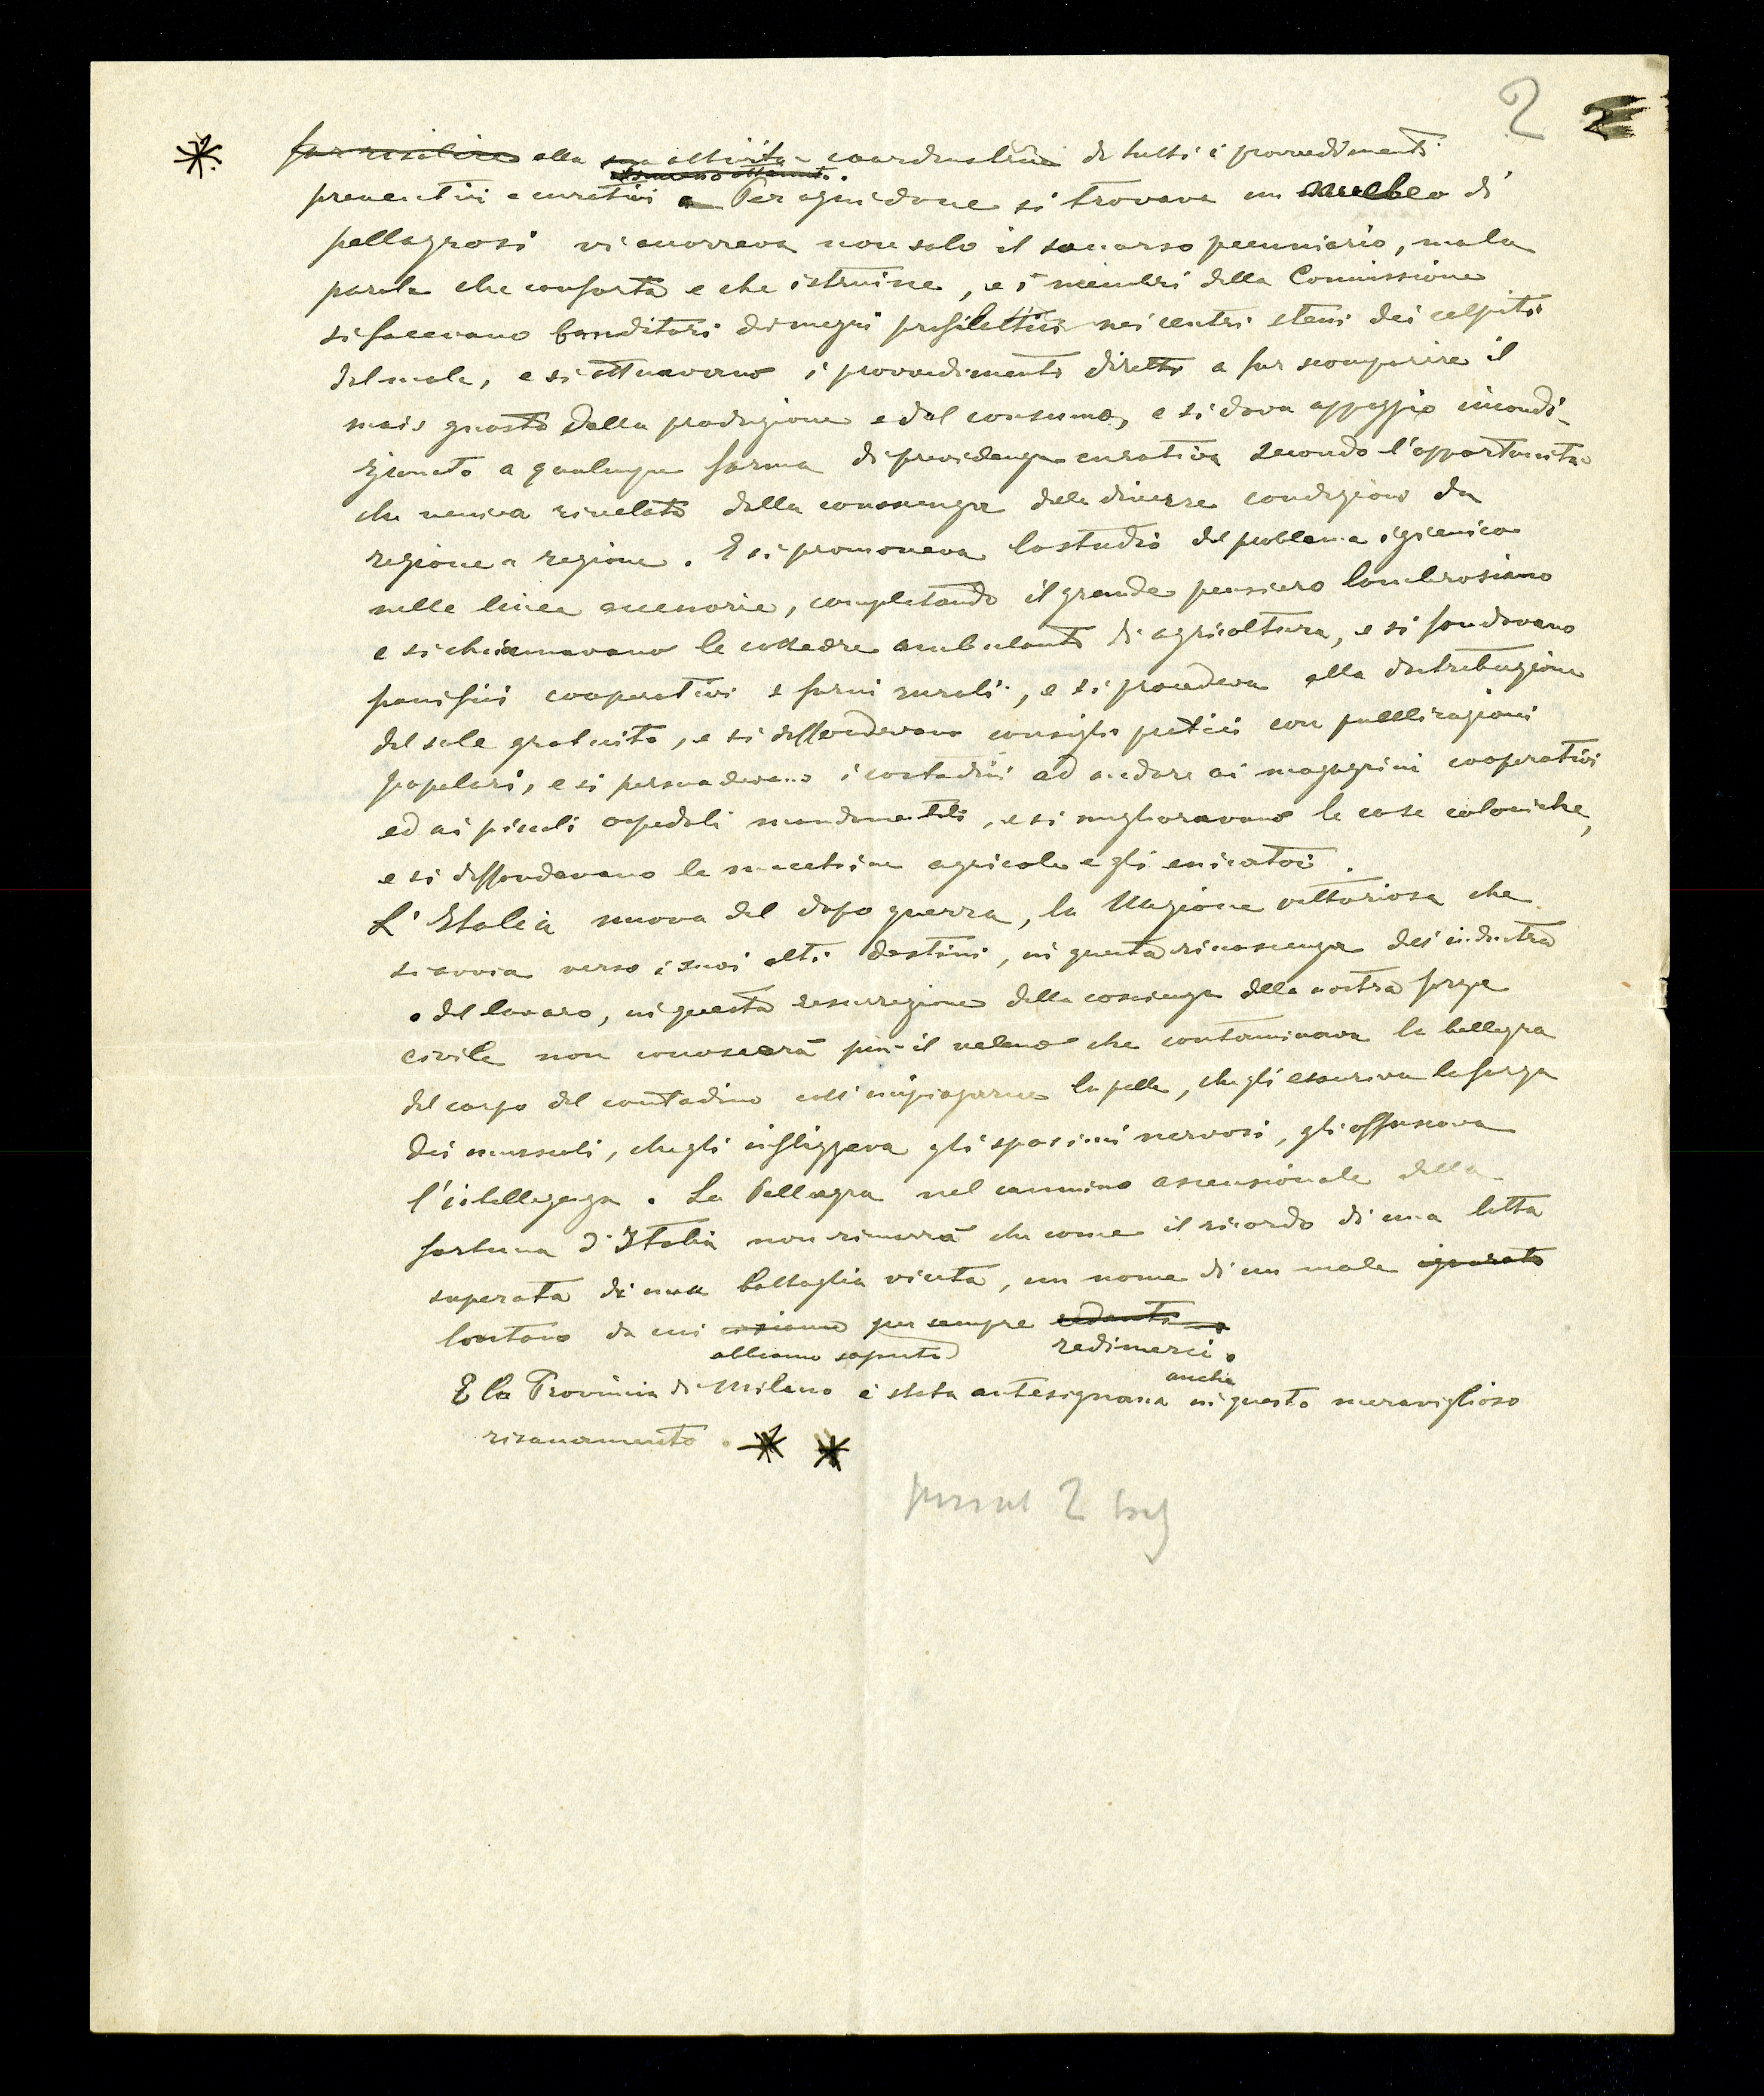 2 2
far risalire alla sua attività coordinatrice di tutti i provvedimenti
preventivi e curativi. Per ogni dove si trovava un nucleo di
pellagrosi vi accorreva non solo il soccorso pecuniario, ma la
parola che conforta e che istruisce, e i membri della Commissione
si facevano banditori dei mezzi profilattici nei centri stessi dei colpiti
dal male, e si attuavano i provvedimenti diretti a far scomparire il
mais guasto dalla produzione e dal consumo, e si dava appoggio incondi-
zionato a qualunque forma di previdenza curativa secondo l'opportunità
che veniva rivelata dalla conoscenza delle diverse condizioni da
regione a regione. E si promoveva lo studio del problema igienico
nelle linee accessorie, completando il grande pensiero lombrosiano
e si chiamavano le cattedre ambulanti di agricoltura, e si fondavano
panifici cooperativi e forni rurali, e si procedeva alla distribuzione
del sale gratuito, e si diffondevano consigli pratici con pubblicazioni
popolari, e si persuadevano i contadini ad andare ai magazzini cooperativi
ed ai piccoli ospedali mandamentali, e si miglioravano le case coloniche,
e si diffondevano le macchine agricole e gli essicatoi.
L'Italia nuova del dopo guerra, la Nazione vittoriosa che
si avvia verso i suoi alti destini, in questa rinascenza dei industria
e del lavoro, in questa resurrezione della coscienza della nostra forza
civile non conoscerà più il veleno che contaminava la bellezza
del corpo del contadino coll'impiagarne la pelle, che gli esauriva la forza
dei muscoli, che gli infliggeva gli spasimi nervosi, gli offuscava
l'intelligenza. La Pellagra nel cammino ascensionale della
fortuna d'Italia non rimarrà che come il ricordo di una lotta
superata di una battaglia vinta, un nome di un male ignorato
lontano da cui per sempre
abbiamo saputo redimerci.
anche
E la Provincia di Milano è stata antesignana in questo meraviglioso
risanamento.
2